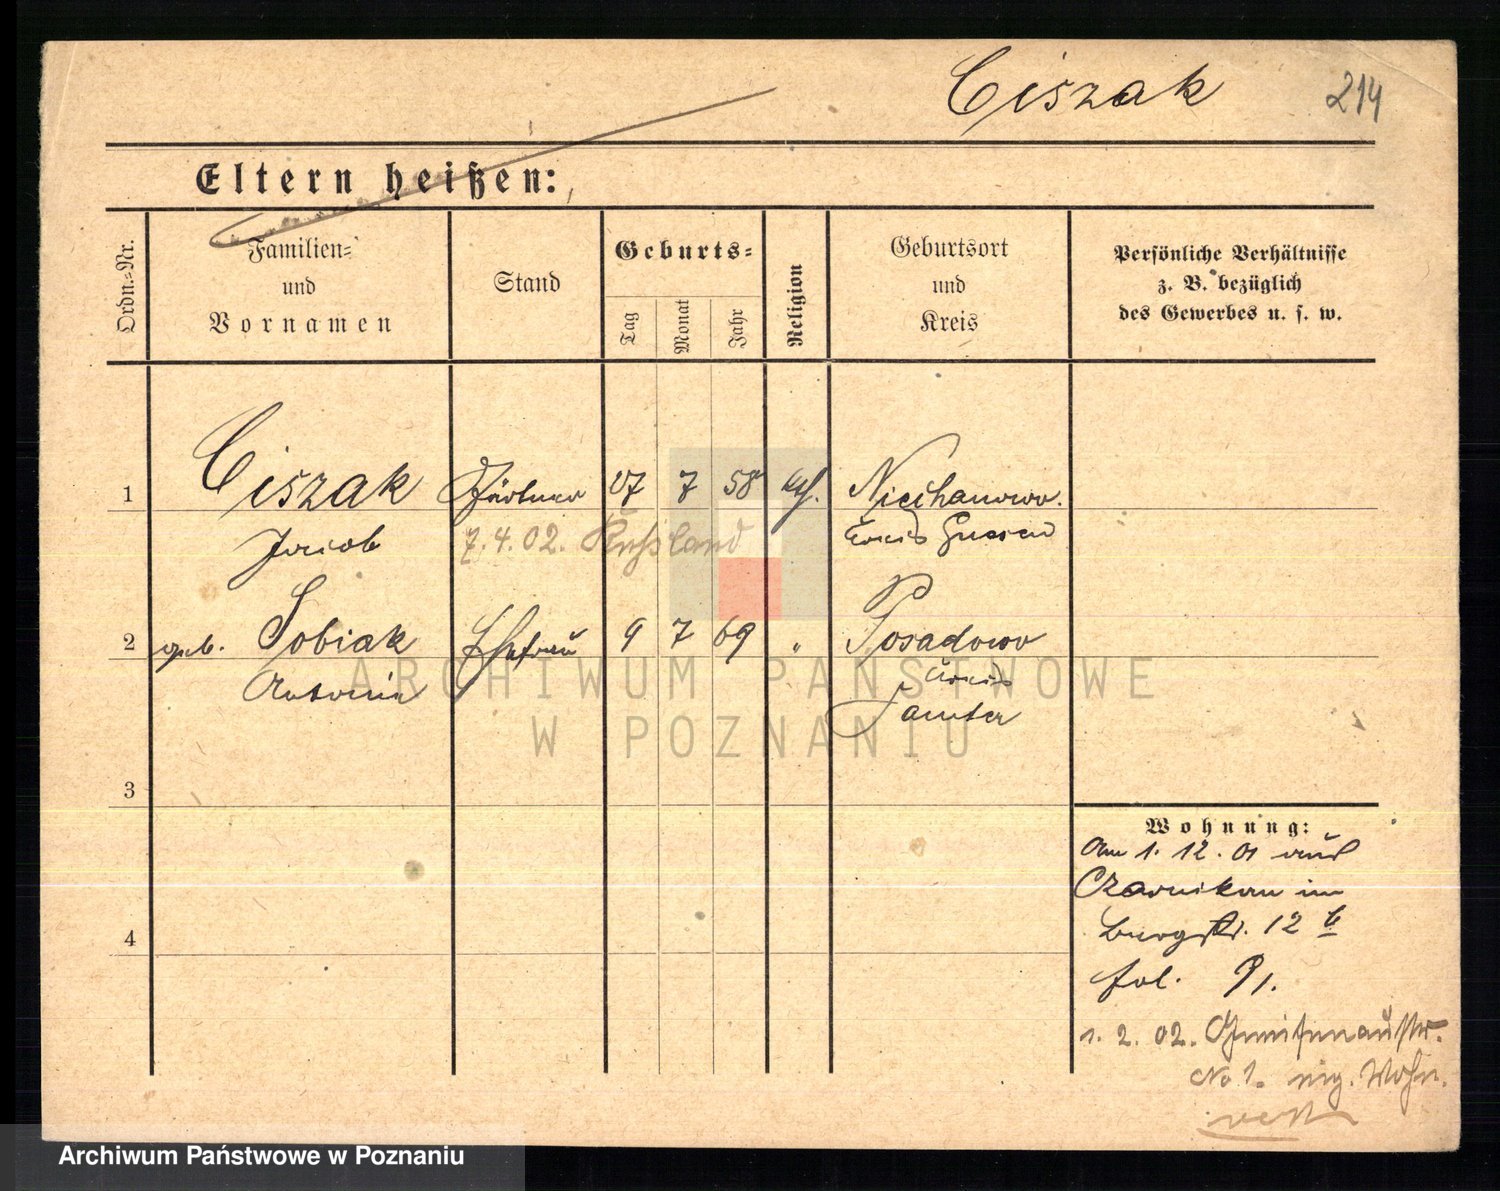 Ciszak 214
Eltern heißen:
Ordn.=Nr.
Familien=
und
Vornamen
Stand
Geburts=
Tag
Monat
Jahr
Religion
Geburtsort
und
Kreis
Persönliche Verhältnisse
z. B. bezüglich
des Gewerbes u. s. w.
1 Ciszak Gärtner 7 58 kth. Niechanowo.
Jacob 7.4.02. Russland Kreis Gnesen
2 geb. Sobiak Ehefrau 9 7 69 " Posadowo
Antonia Kreis
Samter
3
4
Wohnung:
Am 1. 12. 01 aus
Czarnikau im
Burgstr. 12 b
fol. 91.
1. 2. 02. Gneisenaustr.
No 1. eig. Wohn.
ARCHIWUM PAŃSTWOWE
W POZNANIU
Archiwum Państwowe w Poznaniu